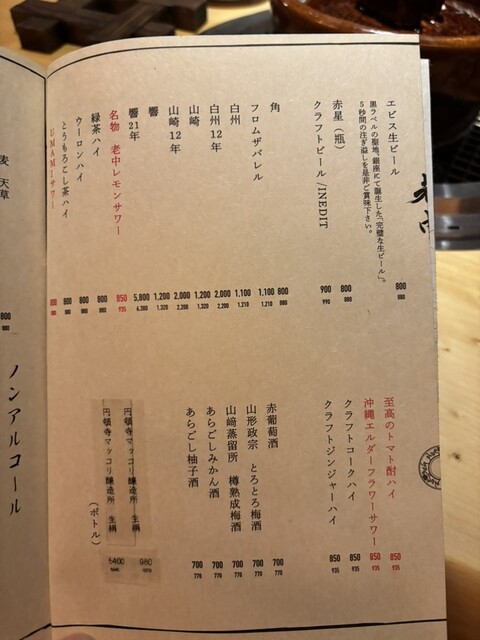 エビス生ビール 800 880
黒ラベルの聖地、銀座にて誕生した「完璧な生ビール」。
5秒間の注ぎ溢しを是非ご賞味下さい。
赤星（瓶） 800 880
クラフトビール /INEDIT 900 990
角 800 880
フロムザバレル 1,100 1,210
白州 1,100 1,210
白州12年 2,000 2,200
山崎 1,200 1,320
山崎12年 2,000 2,200
響 1,200 1,320
響21年 5,800 6,380
名物 老中レモンサワー 850 935
緑茶ハイ 800 880
ウーロンハイ 800 880
とうもろこし茶ハイ 800 880
UMAMIサワー
至高のトマト酎ハイ 850 935
沖縄エルダーフラワーサワー 850 935
クラフトコークハイ 850 935
クラフトジンジャーハイ 850 935
赤葡萄酒 700 770
山形政宗 とろとろ梅酒 700 770
山﨑蒸留所 樽熟成梅酒 700 770
あらごしみかん酒 700 770
あらごし柚子酒 700 770
円領寺マッコリ醸造所 生絹 980
円領寺マッコリ醸造所 生絹 5400
（ボトル）
麦 天草
800 880
ノンアルコール